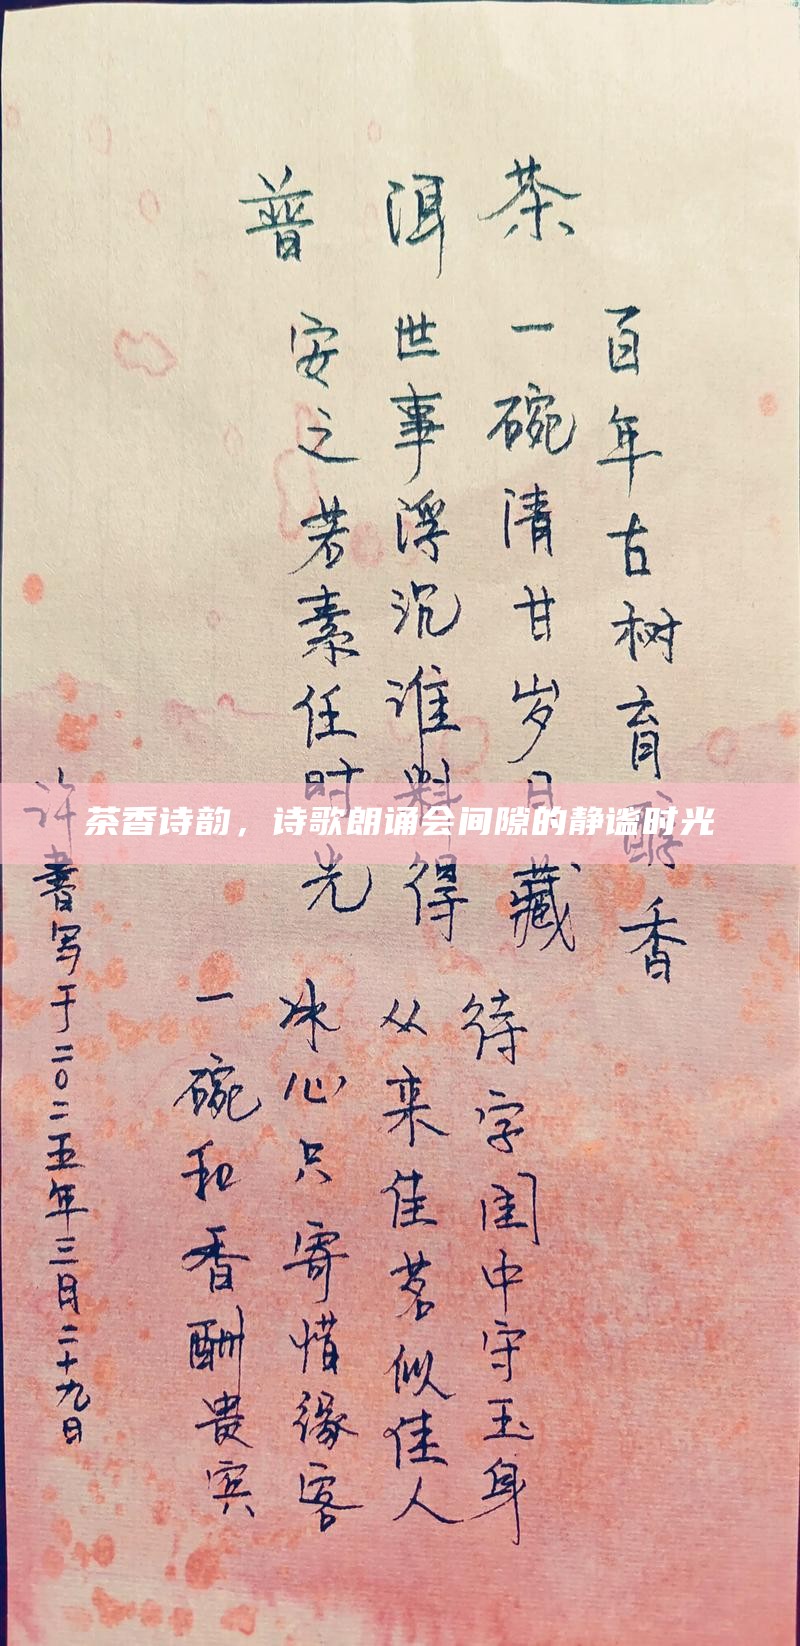 普洱茶
百年古树育醇香
一碗清甘岁月藏
世事浮沉谁料得
安之若素任时光
待字闺中守玉身
从来佳茗似佳人
冰心只寄惜缘客
一碗和香酬贵宾
许書写于二〇二五年三月二十九日
茶香诗韵，诗歌朗诵会间隙的静谧时光